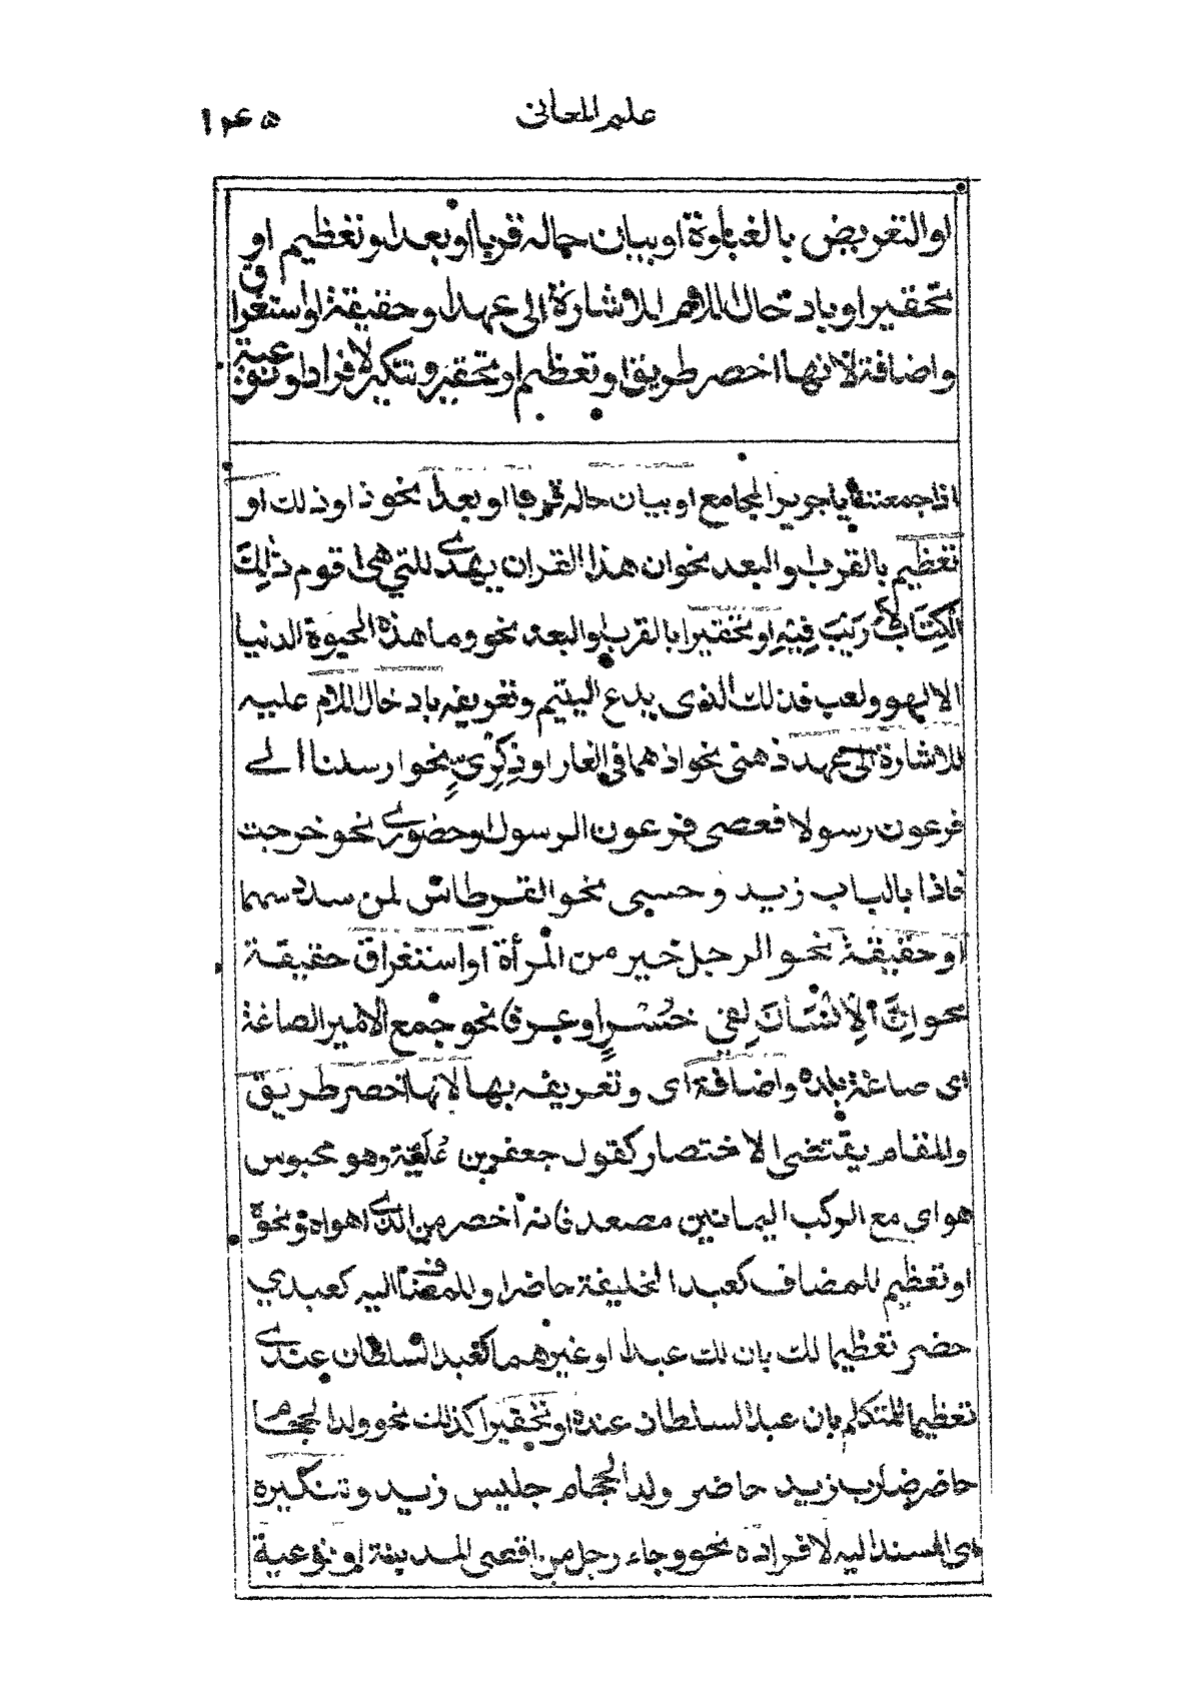 علم المعانى
۱۴۵
او التعريض بالغباوة او بيان حاله قربا او بعدا او تعظيم او
تحقير او بادخال اللام للاشارة الى عهد او حقيقة او استغراق
واضافة لانها اخصر طريق او تعظيم او تحقير وتنكير لافراد او نوعية
اذا جمعتنا يا جرير المجامع او بيان حاله قربا او بعدا نحو ذا وذلك او
تعظيم بالقرب او البعد نحو ان هذا القران يهدى للتي هى اقوم ذٰلِكَ
الْكِتَابُ لَا رَيْبَ فِيْهِ او تحقير بالقرب او البعد نحو وما هذه الحيوة الدنيا
الا لهو ولعب فذلك الذى يدع اليتيم وتعريفه بادخال اللام عليه
للاشارة الى عهد ذهنى نحو اذ هما فى الغار او ذِكْرِىٍّ نحو ارسلنا الى
فرعون رسولا فعصى فرعون الرسول او حضورى نحو خرجت
فاذا بالباب زيد وحسى نحو القرطاس لمن سدد سهما
او حقيقة نحو الرجل خير من المرأة او استغراق حقيقة
نحو اِنَّ الْاِنْسَانَ لَفِيْ خُسْرٍ او عرفا نحو جمع الامير الصاغة
اى صاغة بلده واضافة اى وتعريفه بها لانها اخصر طريق
والمقام يقتضى الاختصار كقول جعفر بن عُلَبَة وهو محبوس
هواى مع الركب اليمانين مصعد فانه اخصر من الذى اهواه ونحوه
او تعظيم للمضاف كعبد الخليفة حاضر او للمضاف اليه كعبدي
حضر تعظيما لك بان لك عبدا او غيرهما كعبد السلطان عندى
تعظيما للمتكلم بان عبد السلطان عنده او تحقير كذلك نحو ولد الحجام
حاضر ضارب زيد حاضر ولد الحجام جليس زيد وتنكيره
اى المسند اليه لافراده نحو وجاء رجل من اقصى المدينة او نوعية